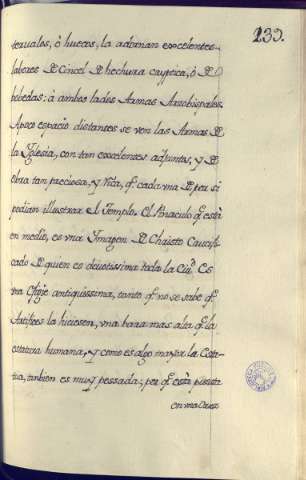 233.
texuales, ò huecos, la adornan excelentes
labores de Cincel de hechura
bebedas: à ambos lados Armas Arzobispales.
A poco espacio distantes se ven las Armas de
la Iglesia, con tan excelentes adjuntos, y de
obra tan preciosa, y Rica, q.e cada vna de por si
pedian illustrar el Templo. El Pinaculo q.e està
en medio, es vna Imagen de Christo Crucifi-
cado de quien es devotissima toda la Ciu.d Es
vna Efigie antiquissima, tanto q.e no se sabe q.e
Artifices la hiciesen, vna bara mas alta q.e la
estatura humana, y como es algo mayor la Esta-
tua, tambien es muy pessada; por q.e està puesta
en vna Cruz